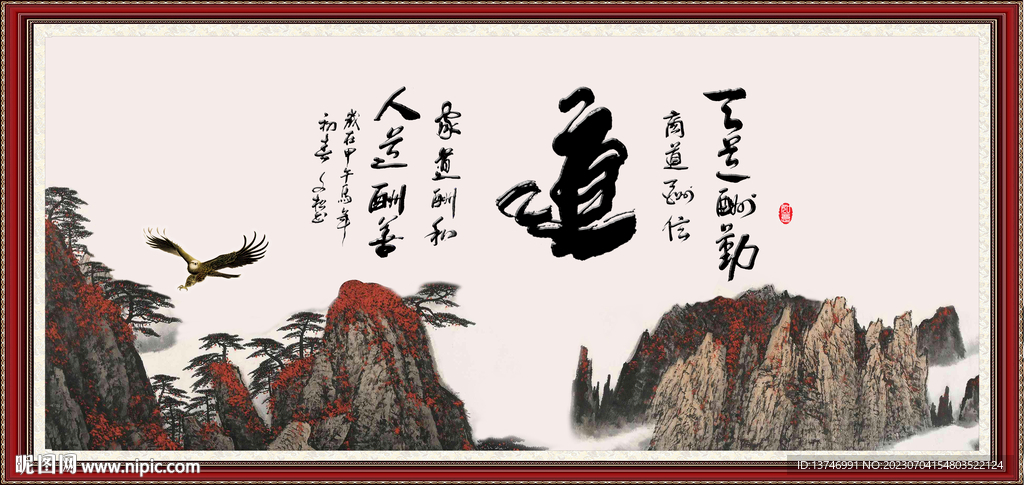 天道酬勤
商道酬信
道
家道酬和
人道酬善
歲在甲午馬年
初春
昵图网 www.nipic.com
ID:13746991 NO:20230704154803522124